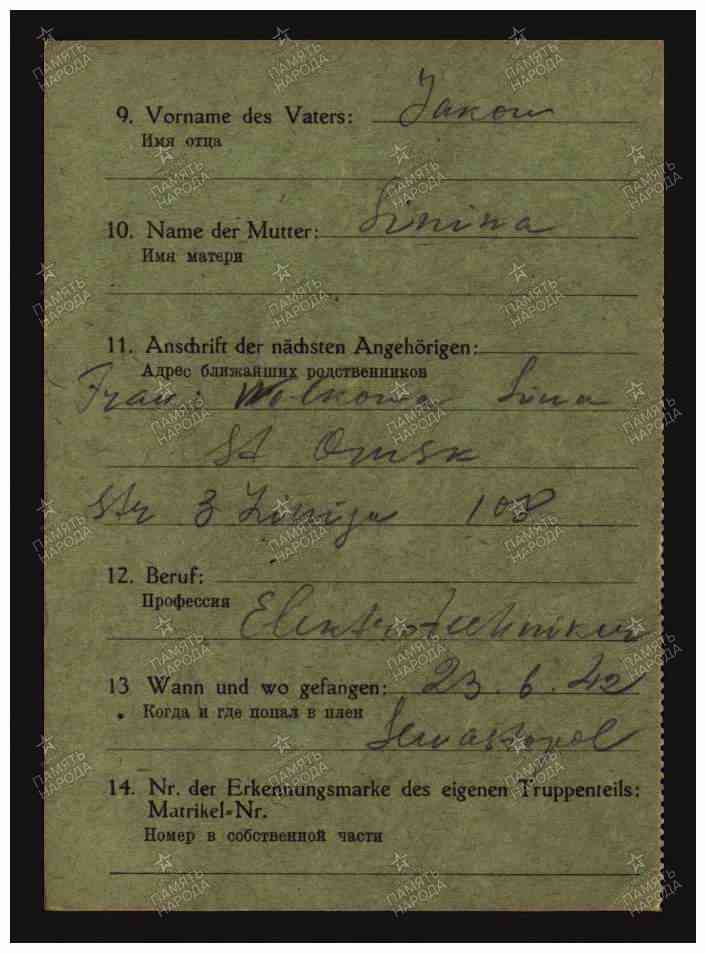 9. Vorname des Vaters: Jakow
Имя отца
10. Name der Mutter: Sinina
Имя матери
11. Anschrift der nächsten Angehörigen:
Адрес ближайших родственников
Frau: Wolkowa Sina
St Omsk
Str 3 Linija 108
12. Beruf:
Профессия
Elektrotechniker
13 Wann und wo gefangen: 23.6.42
Когда и где попал в плен
Sewastopol
14. Nr. der Erkennungsmarke des eigenen Truppenteils:
Matrikel-Nr.
Номер в собственной части
ПАМЯТЬ НАРОДА